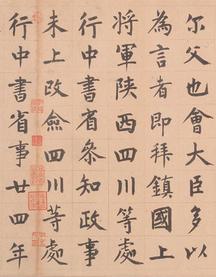 尔父也會大臣多以
為言者即拜鎮國上
將軍陝西四川等處
行中書省叅知政事
未上改僉四川等處
行中書省事廿四年